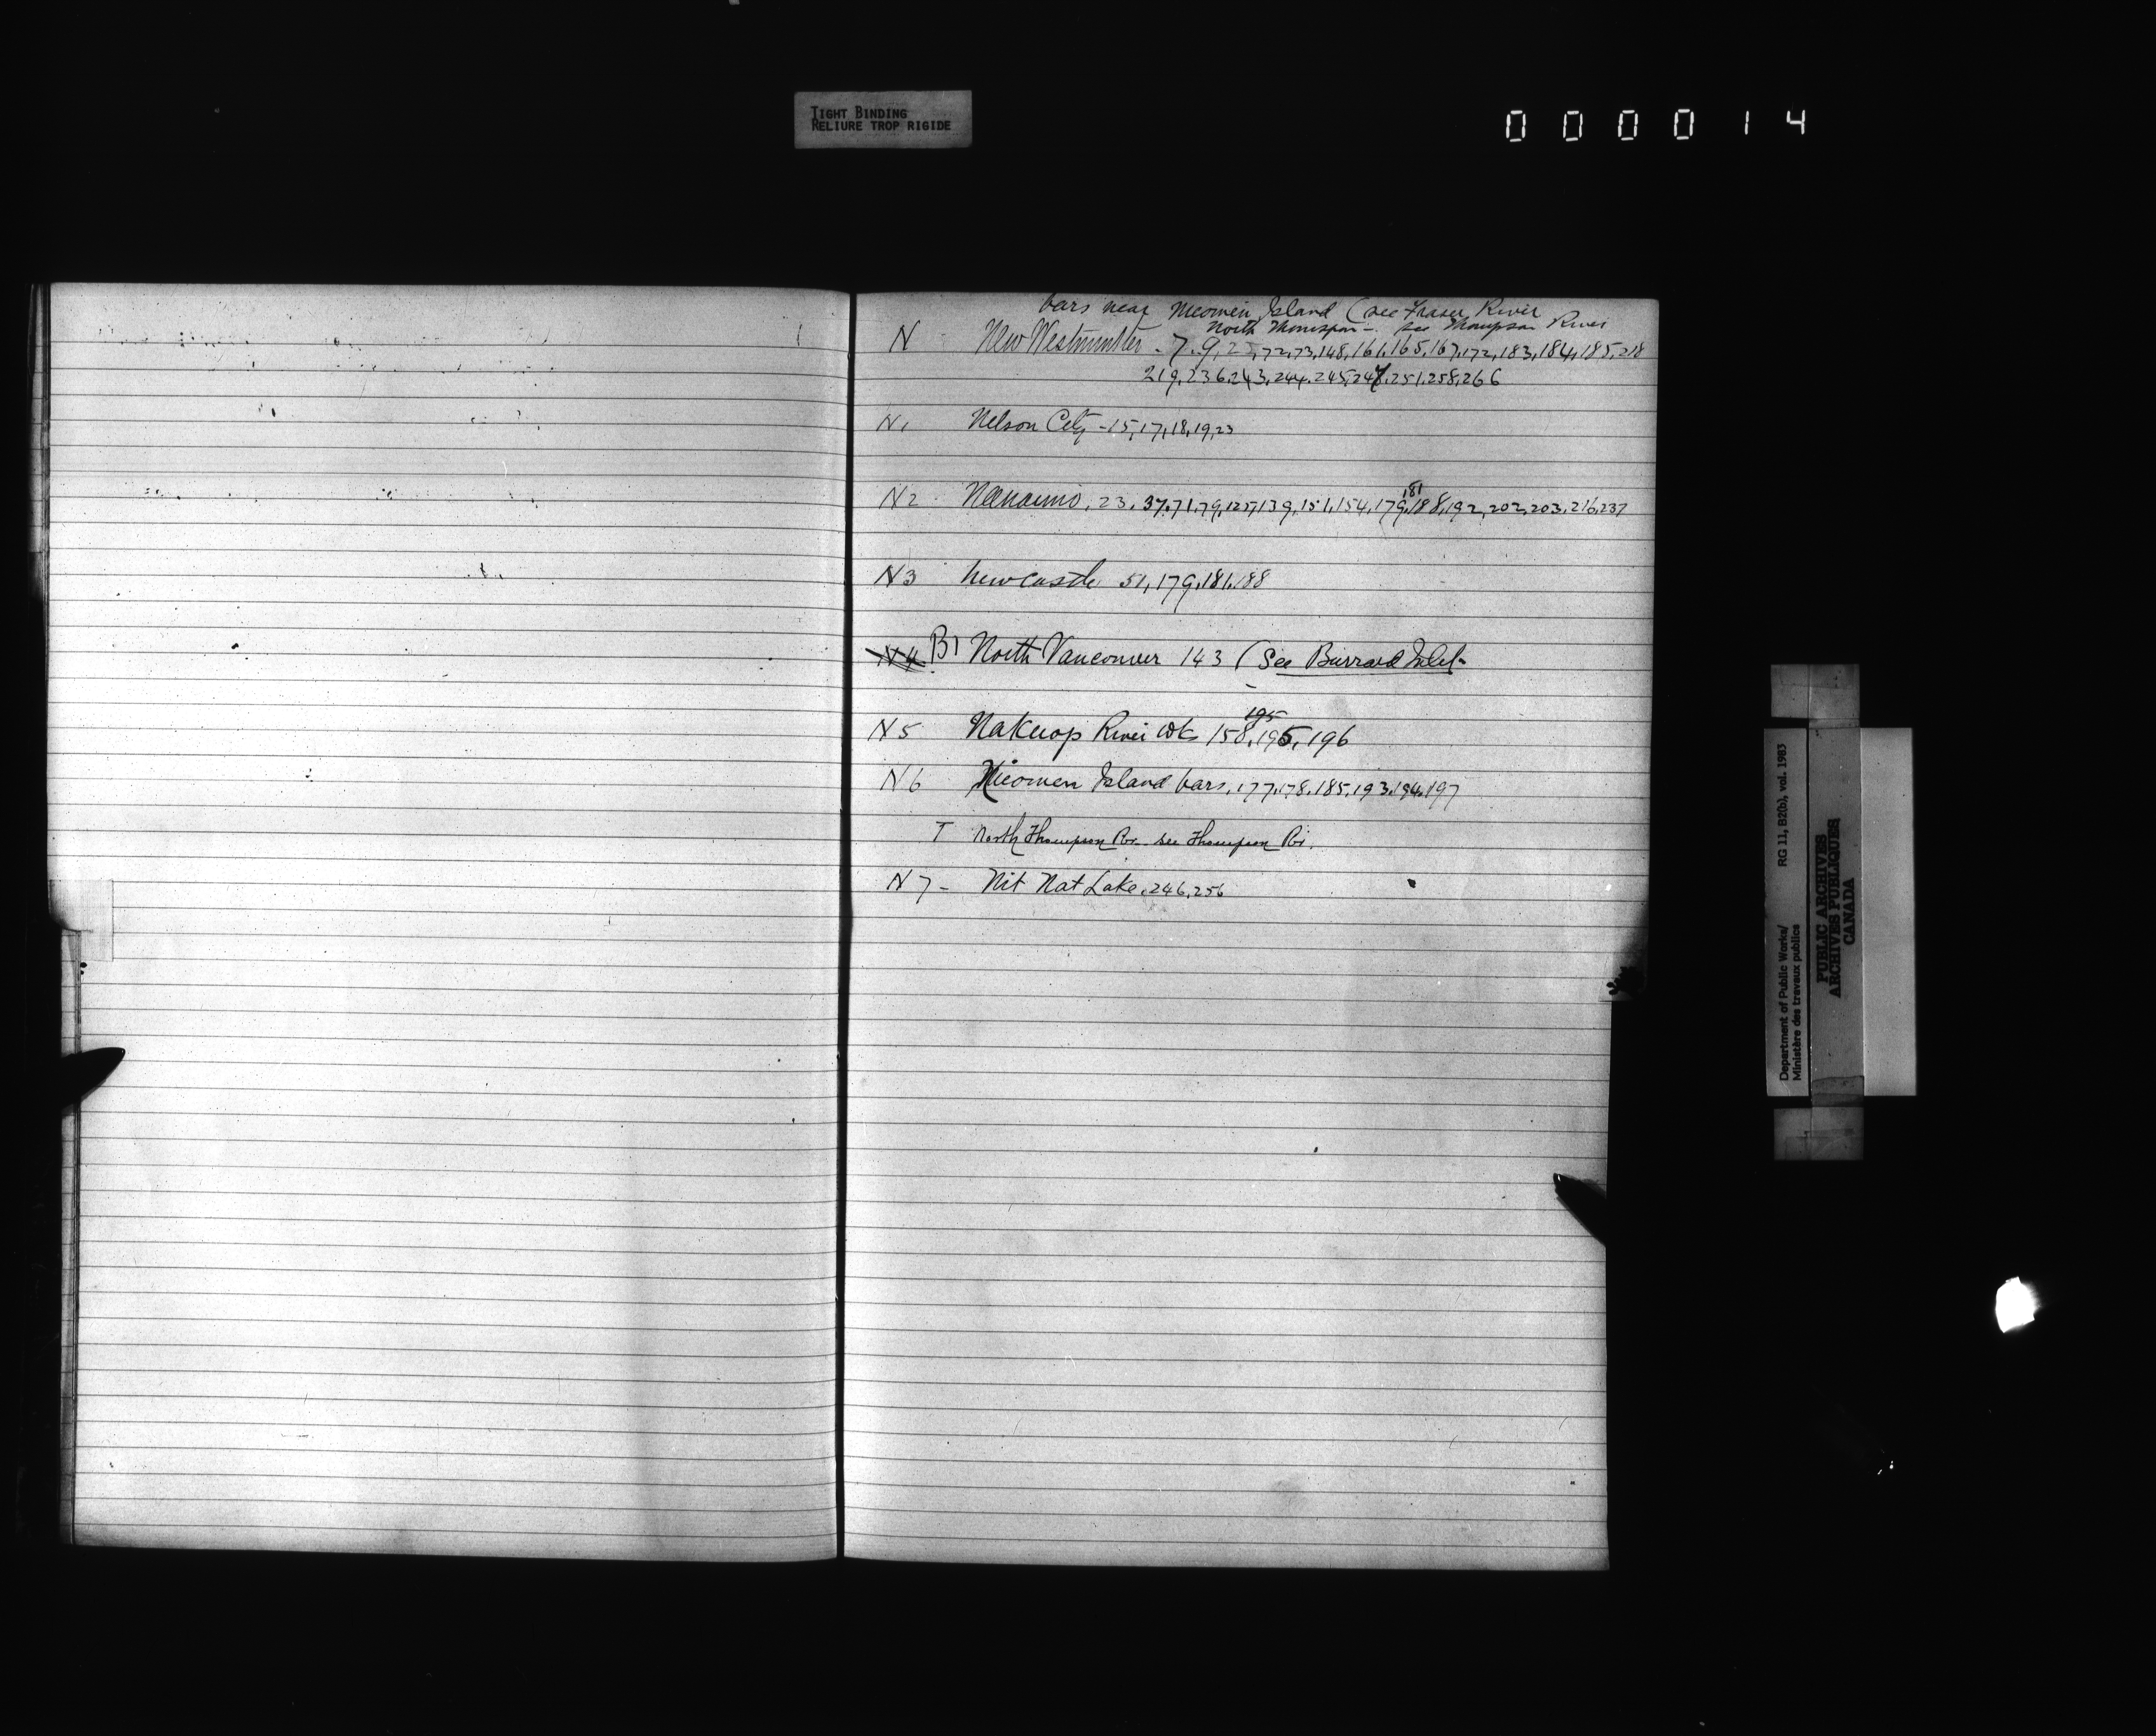 TIGHT BINDING
RELIURE TROP RIGIDE
000014
bars near Nicomen Island (see Fraser River
North Thompson - see Thompson River
N New Westminster. 7.9,25,72,73,148,161,165,167,172,183,184,185,218
219,236,243,244,245,247,251,258,266
N1 Nelson City -15,17,18,19,23
181
N2 Nanaimo. 23. 37,71,79,125,139,151,154,179,188,192,202,203,216,237
N3 Newcastle 51,179,181,188
N4 B1 North Vancouver 143 (See Burrard Inlet-
195
N5 Nakusp River Wks 158,195,196
N6 Nicomen Island bars,177,178,185,193,194,197
T North Thompson Rr. see Thompson Rr.
N7- Nit Nat Lake.246,256
Department of Public Works/ RG 11, B2(b), vol. 1983
Ministère des travaux publics
PUBLIC ARCHIVES
ARCHIVES PUBLIQUES
CANADA